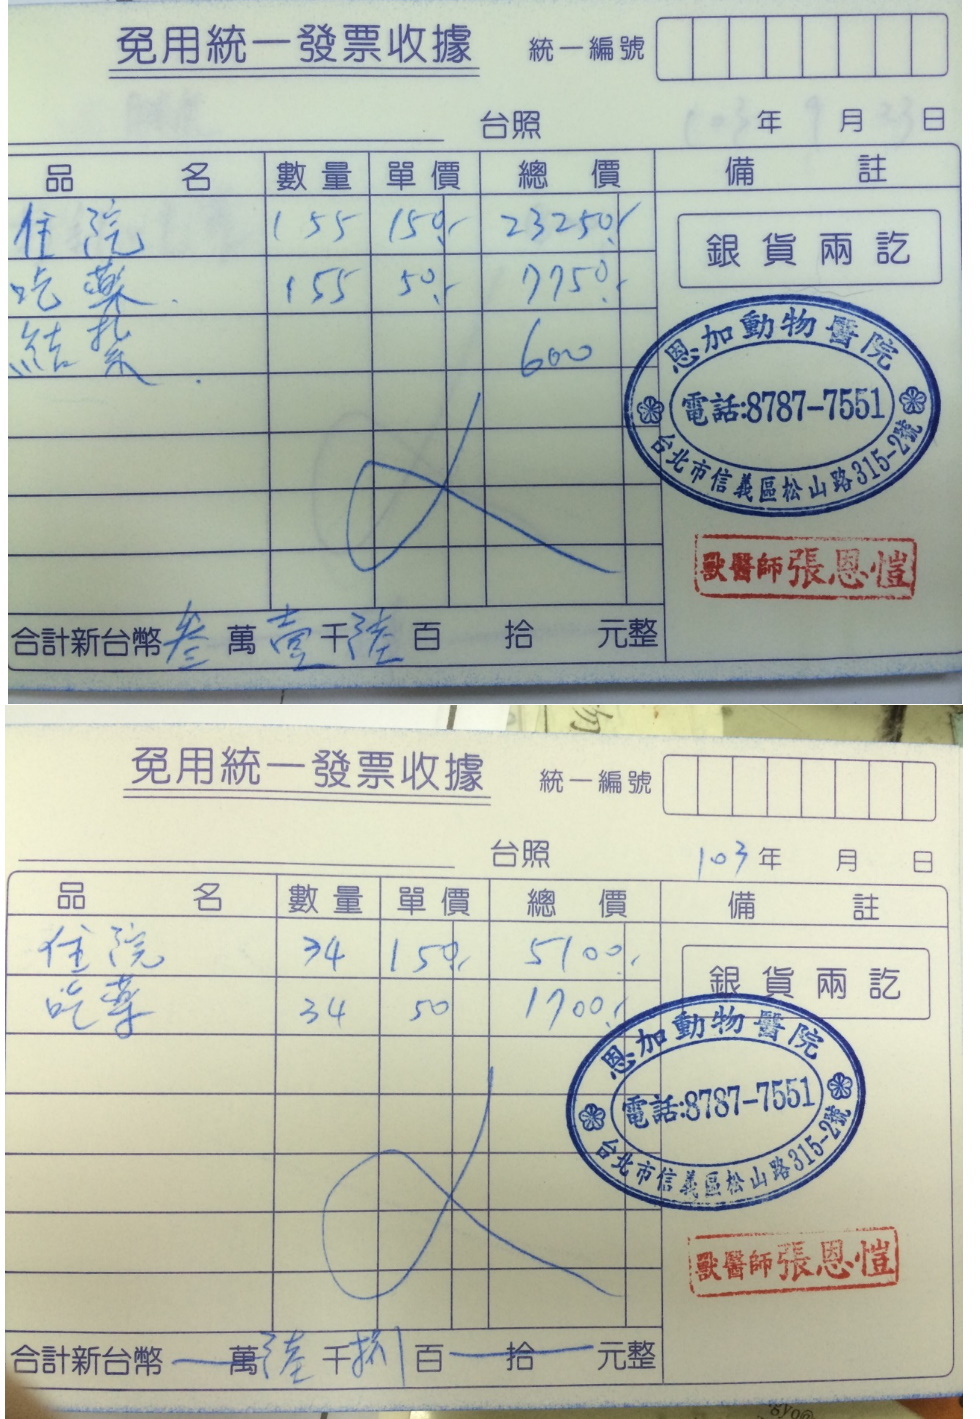 免用統一發票收據 統一編號
台照 103年9月 日
品名 數量 單價 總價 備註
住院 155 150.- 23250.-
銀貨兩訖
吃藥. 155 50.- 7750.-
結紮. 600
恩加動物醫院
電話:8787-7551
台北市信義區松山路315-2號
獸醫師張恩愷
合計新台幣叁萬壹千陸百 拾 元整
免用統一發票收據 統一編號
台照 103年 月 日
品名 數量 單價 總價 備註
住院 34 150.- 5100.-
銀貨兩訖
吃藥 34 50 1700.-
恩加動物醫院
電話:8787-7551
台北市信義區松山路315-2號
獸醫師張恩愷
合計新台幣 萬陸千捌百 拾 元整